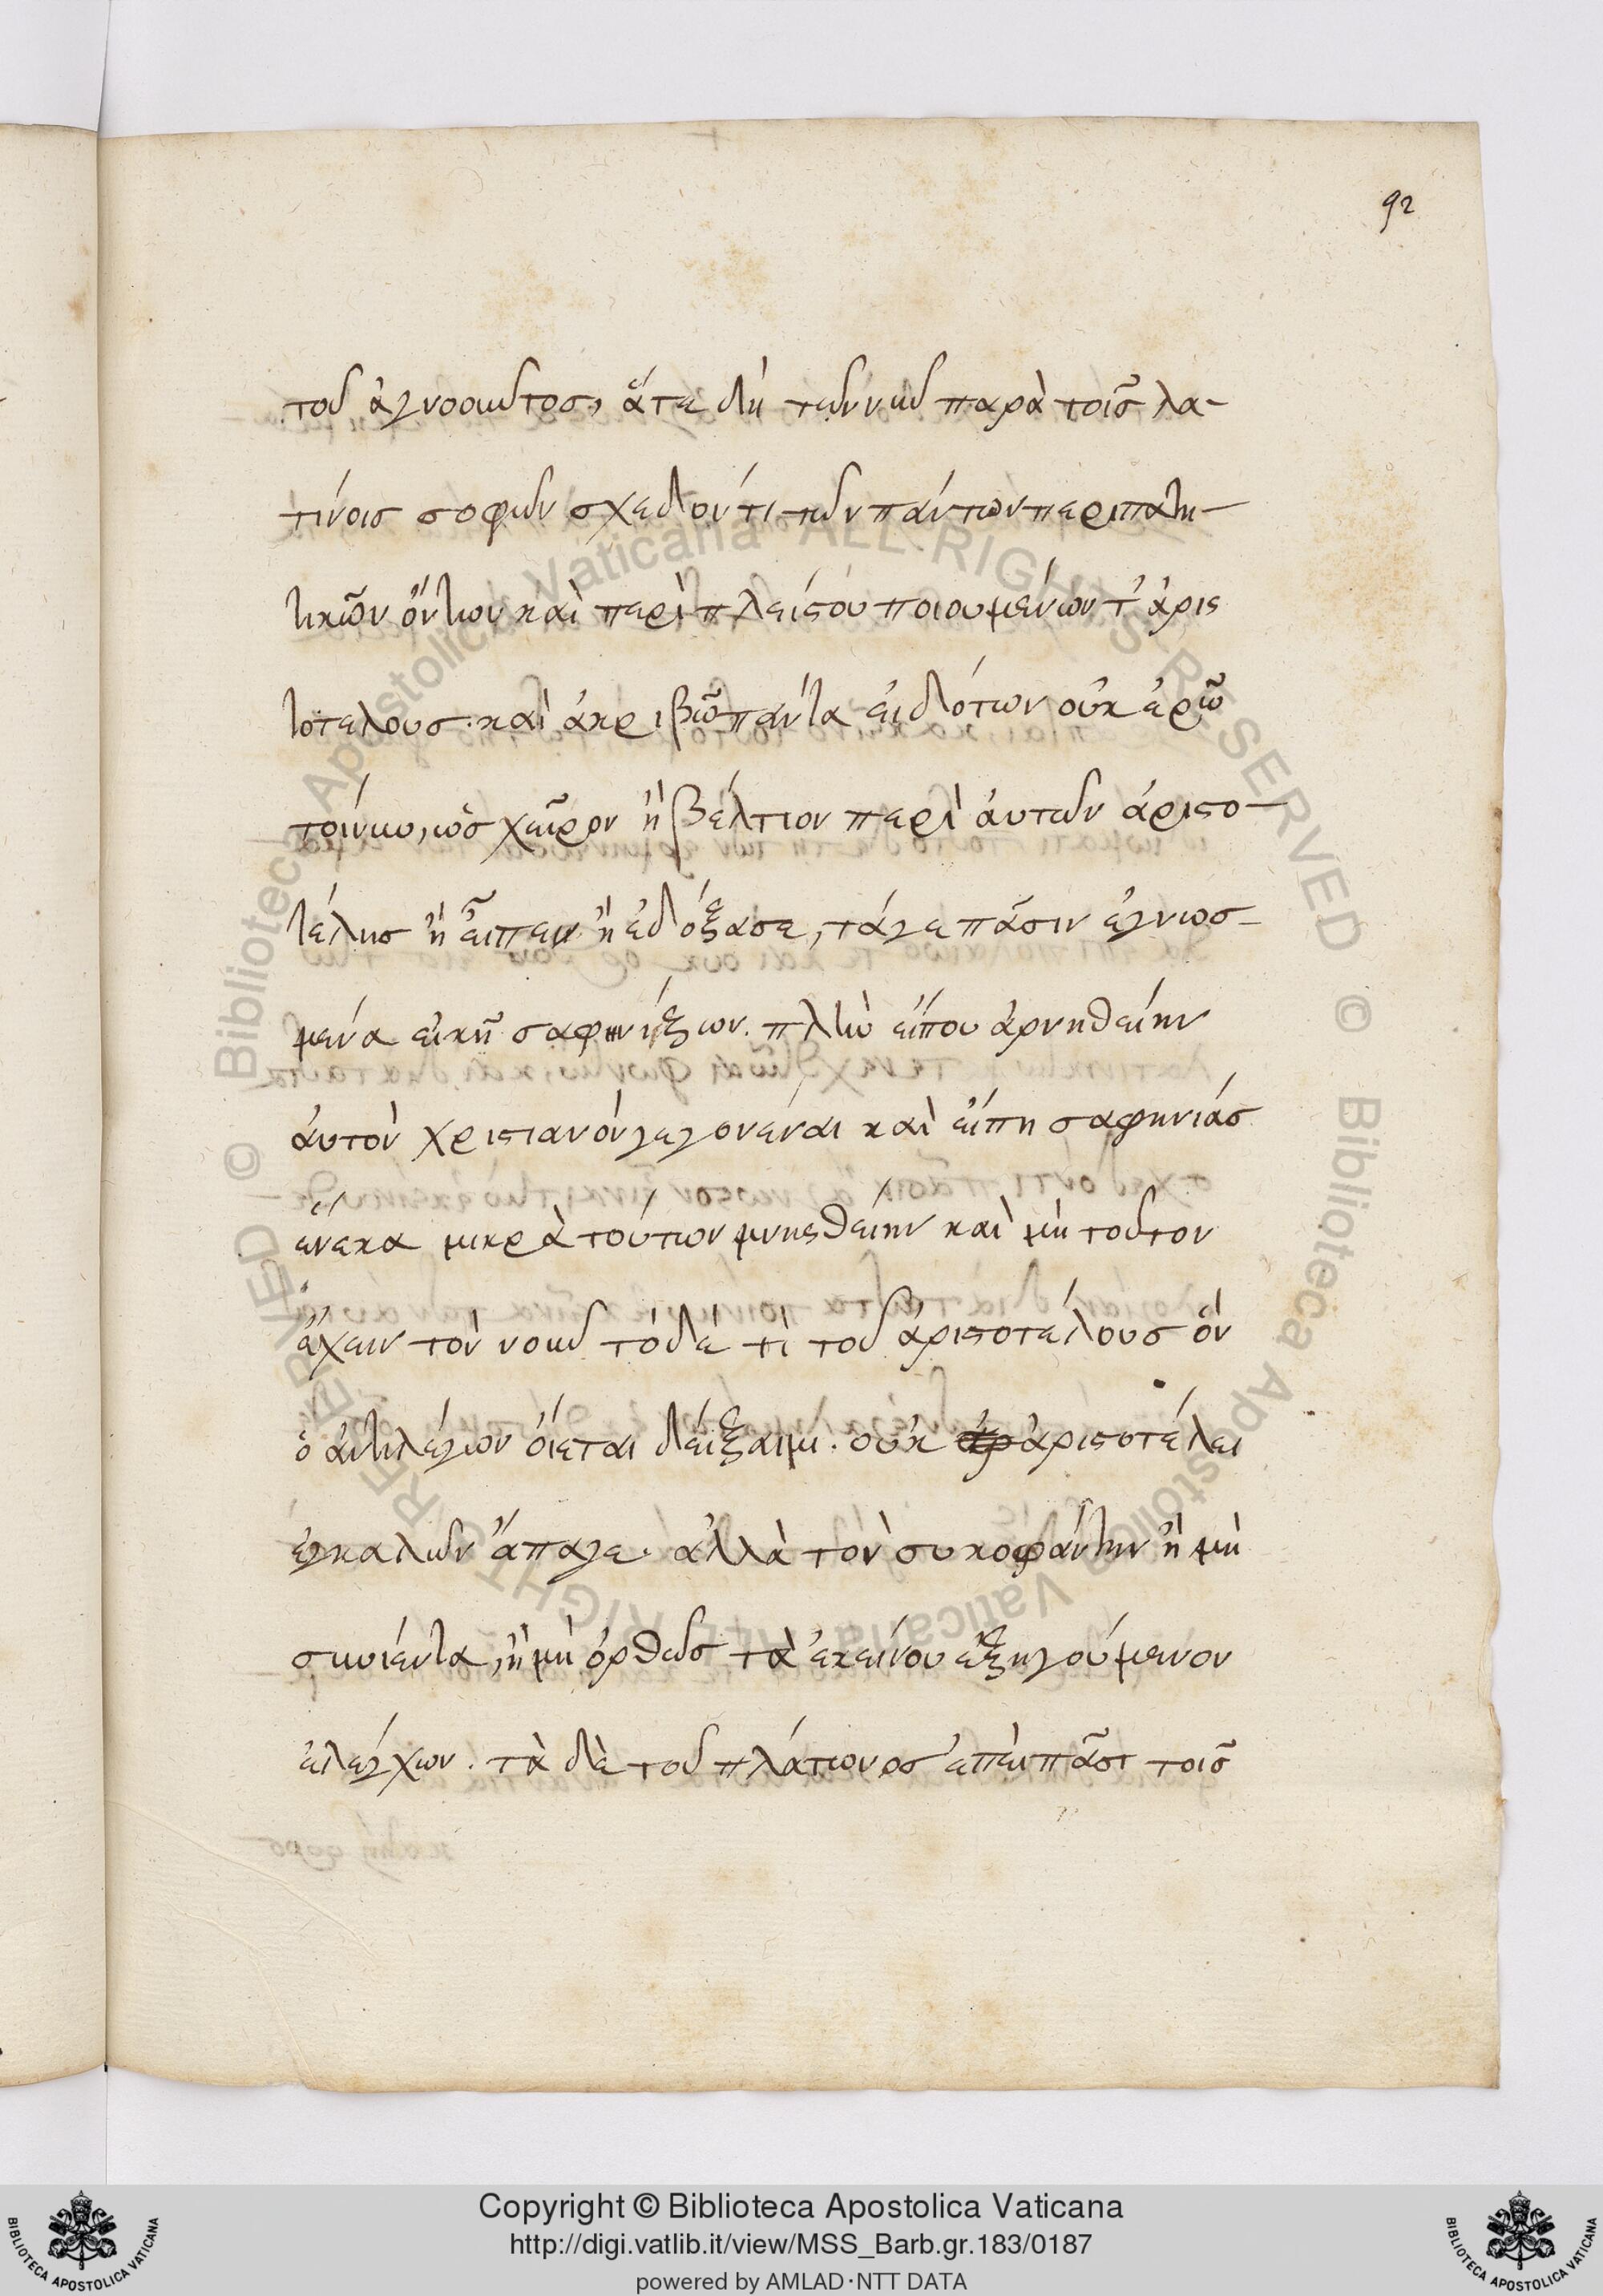 92
τοῦ ἀγνοοῦντος, ἅτε δὴ τῶν νῦν παρὰ τοῖς λα-
τίνοις σοφῶν σχεδόν τι τῶν πάντων περιπατη-
τικῶν ὄντων καὶ περὶ πλείστου ποιουμένων τ ἀρισ
τοτέλους. καὶ ἀκριβῶ πάντα εἰδότων οὐκ ἐρῶ
τοίνυν, ὡς χεῖρον ἢ βέλτιον περὶ αὐτῶν ἀριστο-
τέλης ἢ εἶπεν ἢ ἐδόξασε, τάγε πᾶσιν ἐγνωσ-
μένα εἰκῆ σαφηνίξων. πλὴν εἴπου ἀρνηθείην
αὐτὸν χριστιανὸν γεγονέναι καὶ εἴπη σαφηνίας
ἕνεκα μικρὰ τούτων μνησθείην καὶ μὴ τοῦτον
ἔχειν τὸν νοῦν τόδέ τι τοῦ ἀριστοτέλους ὃν
ὁ ἀντιλέγων οἴεται δείξαιμι. οὐκ ἀριστοτέλει
ἐγκαλῶν ἄπαγε. ἀλλὰ τὸν συκοφάντην ἢ μὴ
συνιέντα, ἢ μὴ ὀρθῶς τὰ ἐκείνου ἐξηγούμενον
ἐλέγχων. τὰ δὲ τοῦ πλάτωνος ἐπεὶ πᾶσι τοῖς
Copyright © Biblioteca Apostolica Vaticana
http://digi.vatlib.it/view/MSS_Barb.gr.183/0187
powered by AMLAD·NTT DATA
BIBLIOTECA APOSTOLICA VATICANA
BIBLIOTECA APOSTOLICA VATICANA
© Biblioteca Apostolica Vaticana ALL RIGHTS RESERVED © Biblioteca Apostolica Vaticana ALL RIGHTS RESERVED